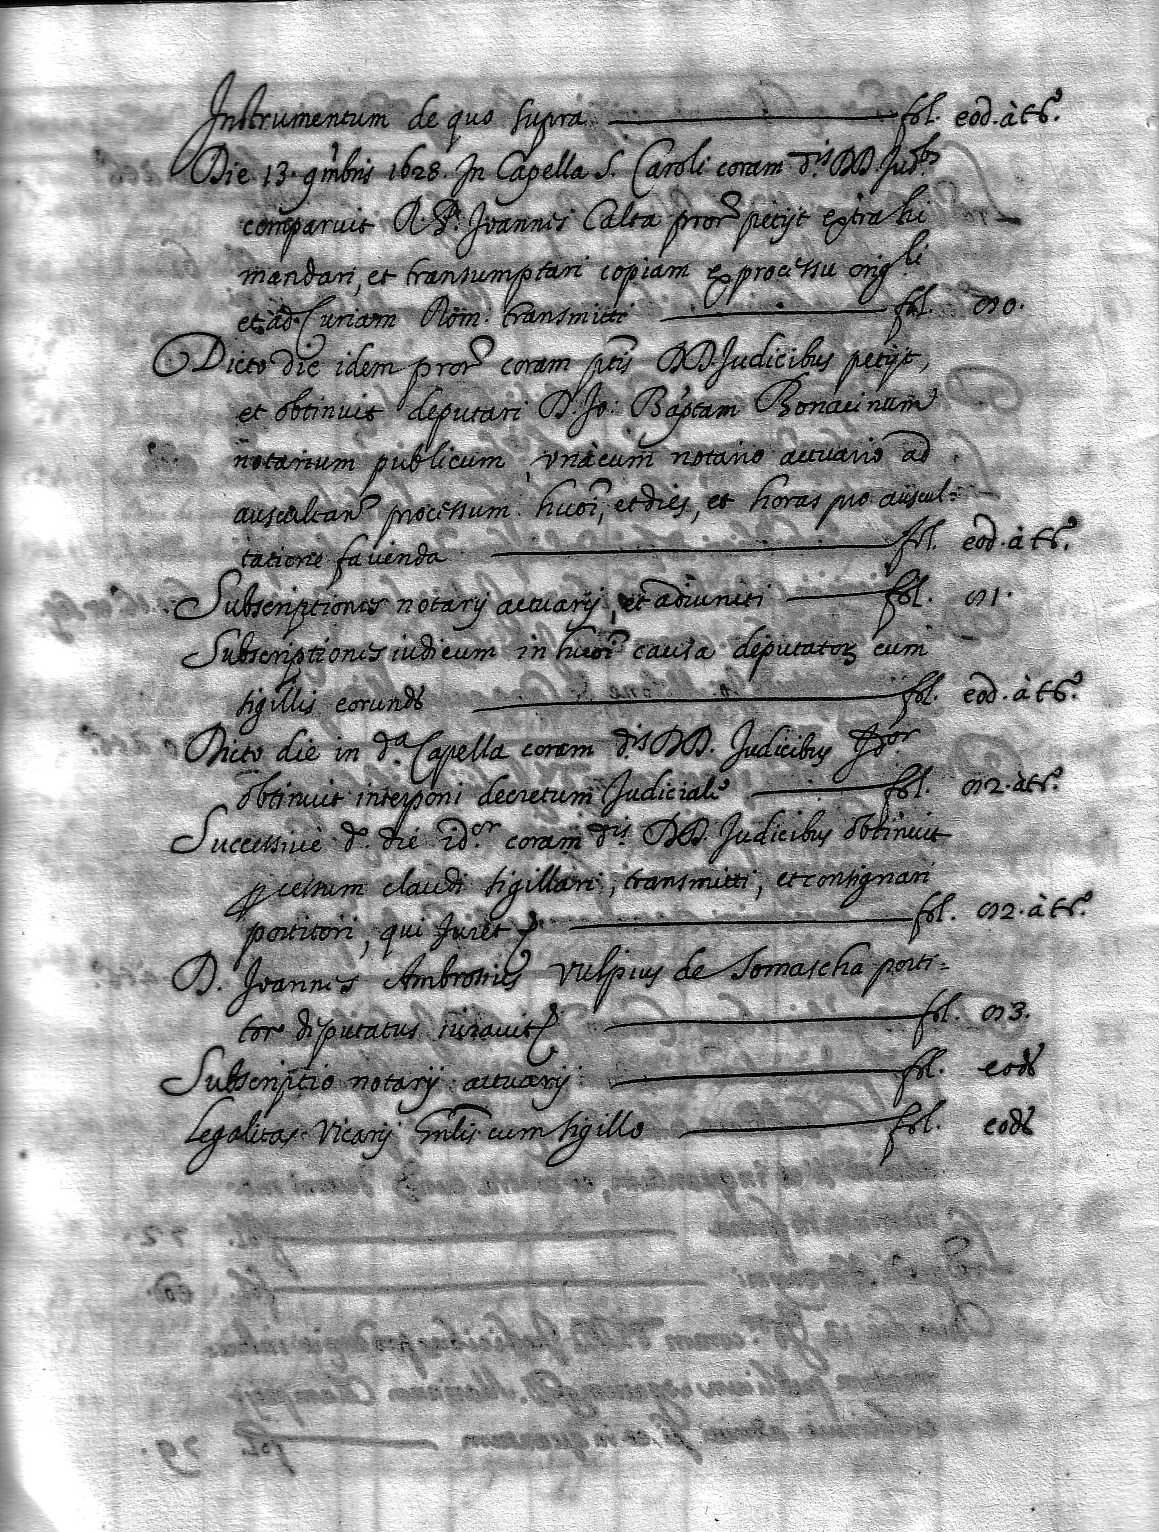 Instrumentum de quo supra ——— fol. eod. à tẽ.
Die 13. 9mbris 1628. In Capella S. Caroli coram d.is DD. Jud.bs
comparuit R. P. Joannes Calta pror petijt extrahi
mandari, et transumptari copiam ex processu orig.li
et ad Curiam Rom. transmitti ——— fol. 90.
Dicto die idem pror coram ptis DD. Judicibus petijt,
et obtinuit deputari D. Jo: Baptam Bonacinum
notarium publicum vnacum notario actuario ad
auscultand processum huiõi, et dies, et horas pro auscul=
tatione favenda ——— fol. eod. à tẽ.
Subscriptiones notarij actuarij, et adiuncti ——— fol. 91.
Subscriptiones iudicum in huiõi causa deputator cum
sigillis eorund ——— fol. eod. à tẽ.
Dicto die in d.a Capella coram d.is DD. Judicibus
obtinuit interponi decretum Judiciale ——— fol. 92. à tẽ.
Successive d.o die id. coram d.is DD. Judicibus obtinuit
pcessum claudi sigillari, transmitti, et consignari
portitori, qui Juret ——— fol. 92. à tẽ.
D. Joannes Ambrosius Vulpius de Somascha porti=
tor deputatus iuravit ——— fol. 93.
Subscriptio notarij actuarij ——— fol. eod
Legalitas Vicarij Gnlis cum sigillo ——— fol. eod